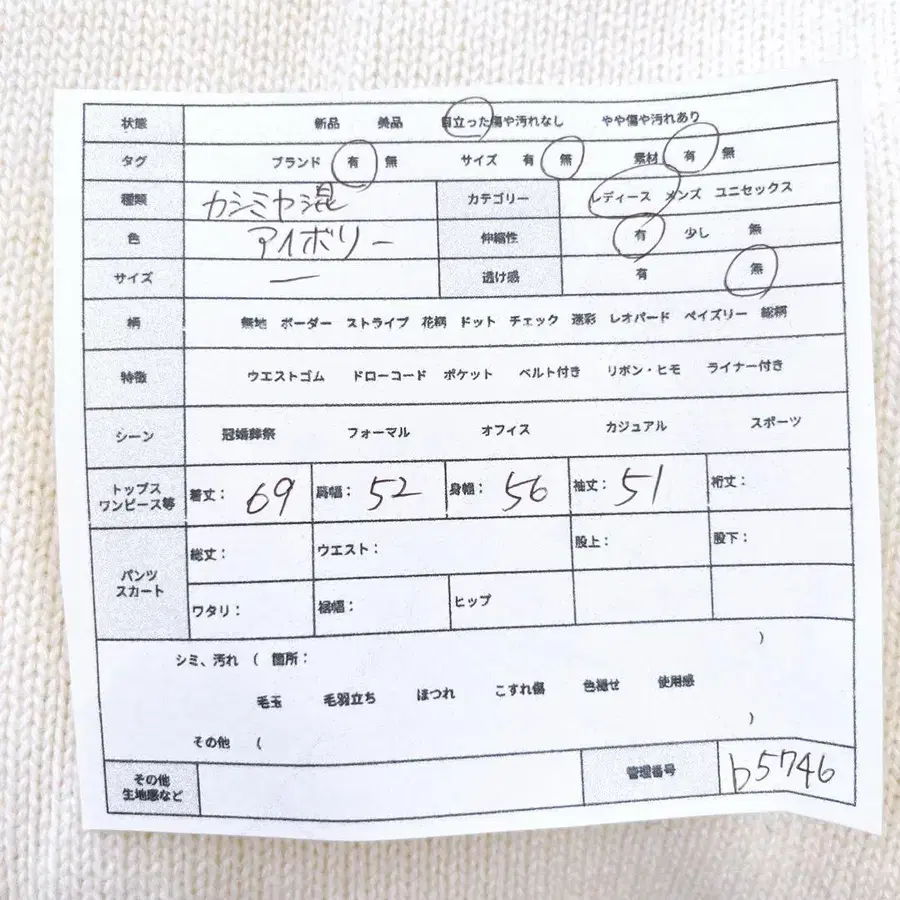 状態 新品 美品 目立った傷や汚れなし やや傷や汚れあり
タグ ブランド 有 無 サイズ 有 無 素材 有 無
種類 カシミヤ混 カテゴリー レディース メンズ ユニセックス
色 アイボリー 伸縮性 有 少し 無
サイズ ー 透け感 有 無
柄 無地 ボーダー ストライプ 花柄 ドット チェック 迷彩 レオパード ペイズリー 総柄
特徴 ウエストゴム ドローコード ポケット ベルト付き リボン・ヒモ ライナー付き
シーン 冠婚葬祭 フォーマル オフィス カジュアル スポーツ
トップス
ワンピース等 着丈: 69 肩幅: 52 身幅: 56 袖丈: 51 裄丈:
パンツ
スカート 総丈: ウエスト: 股上: 股下:
ワタリ: 裾幅: ヒップ
シミ、汚れ ( 箇所: )
毛玉 毛羽立ち ほつれ こすれ傷 色褪せ 使用感
その他 ( )
その他
生地感など 管理番号 b5746